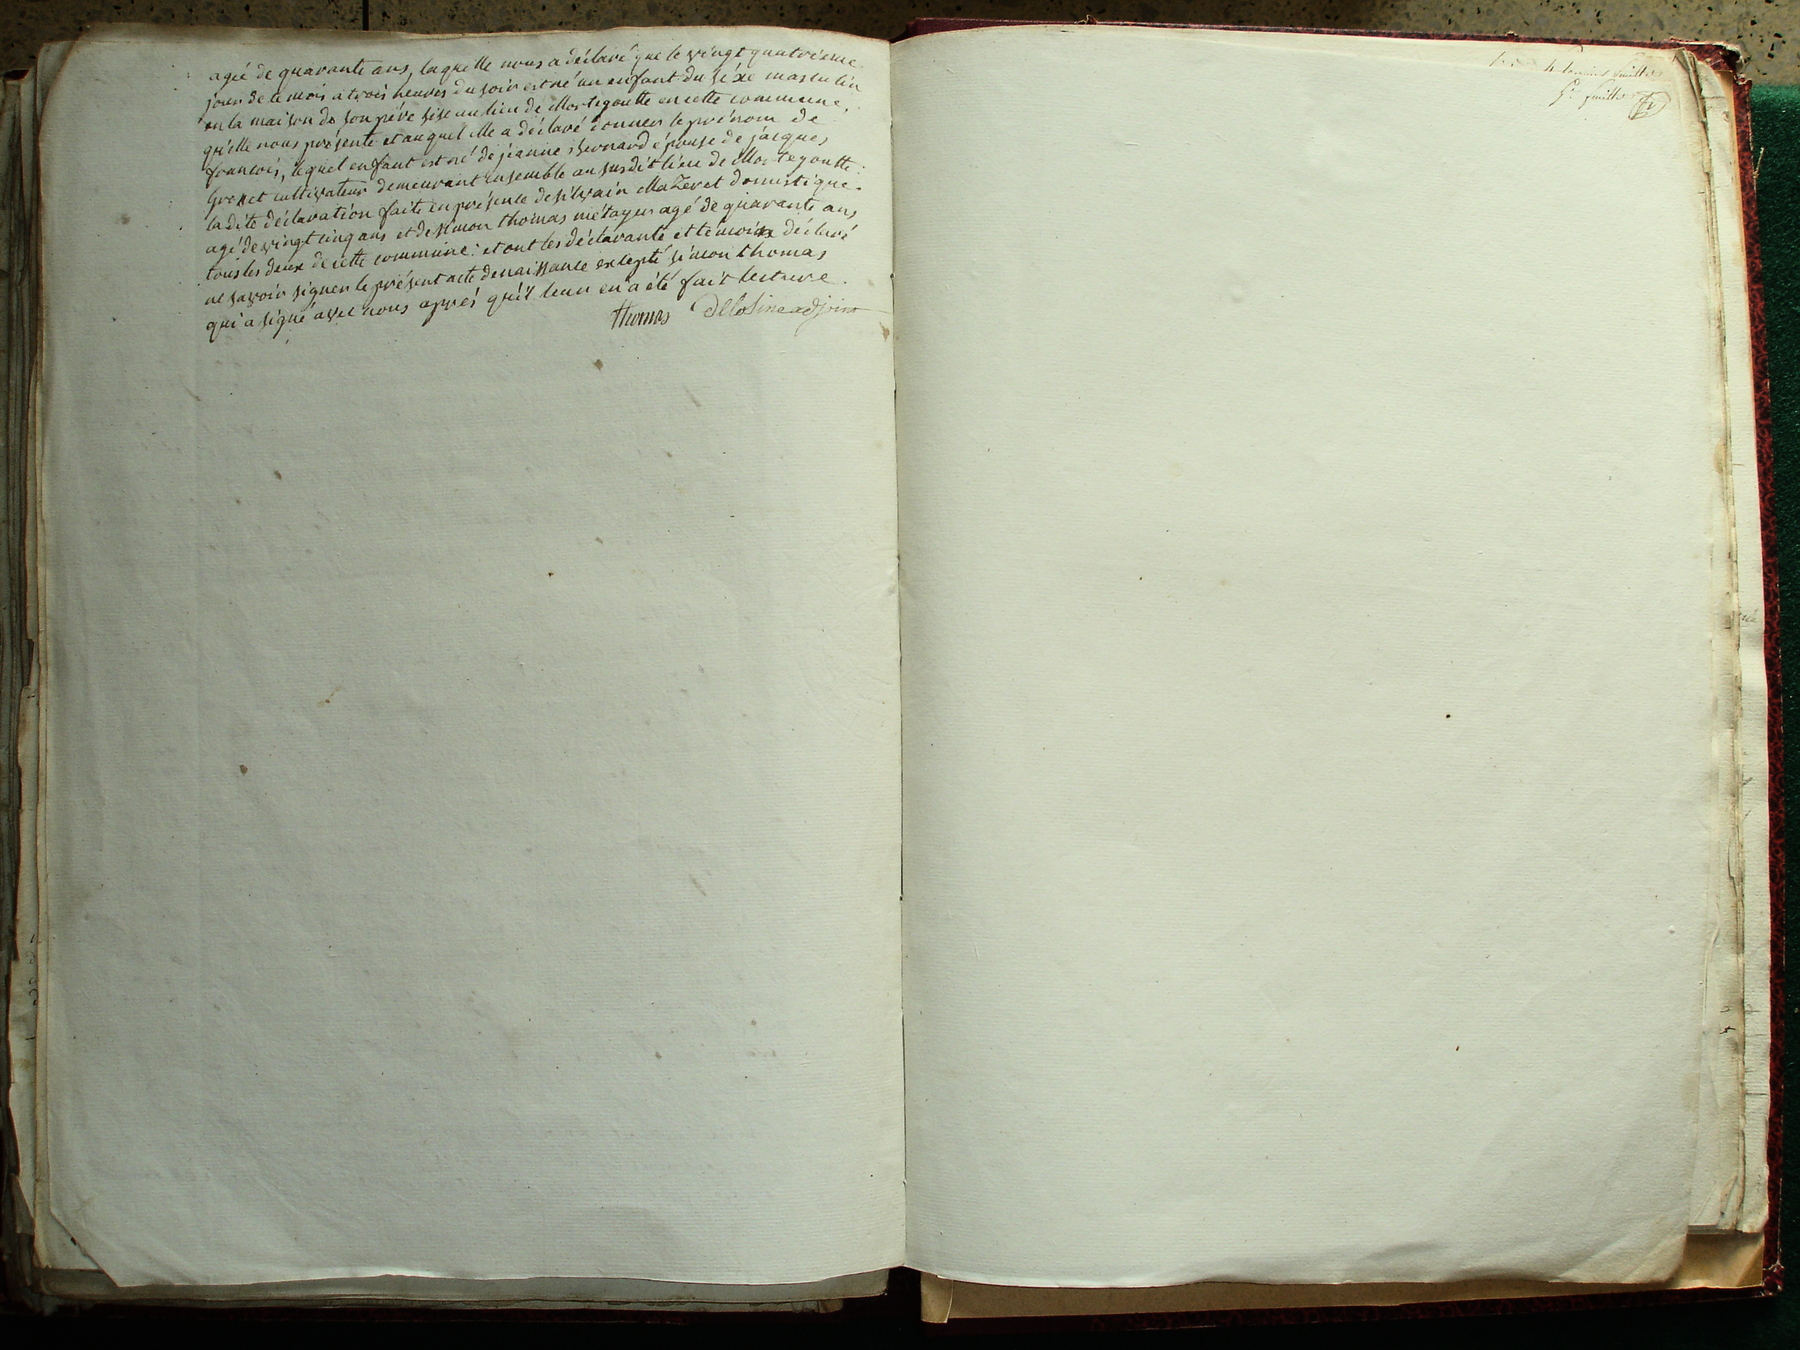 agée de quarante ans, laquelle nous a déclaré que le vingt quatrième
jour de ce mois a trois heures du soir est né un enfant du séxe masculin
en la maison de son père sise au lieu de Mortegoutte en cette commune,
qu'elle nous présente et auquel elle a déclaré donner le prénom de
francois, lequel enfant est né de jeanne Bernard épouse de jacques
cultivateur demeurant ensemble au susdit lieu de Mortegoutte.
la dite déclaration faite en présence de silvain Mazeret domestique
agé de vingt cinq ans et de simon thomas métayer agé de quarante ans
tous les deux de cette commune: et ont les déclarante et témoins déclaré
ne savoir signer le présent acte de naissance excepté simon thomas
qui a signé avec nous aprés qu'il leur en a été fait lecture.
thomas adjoint
feuillet
feuillet